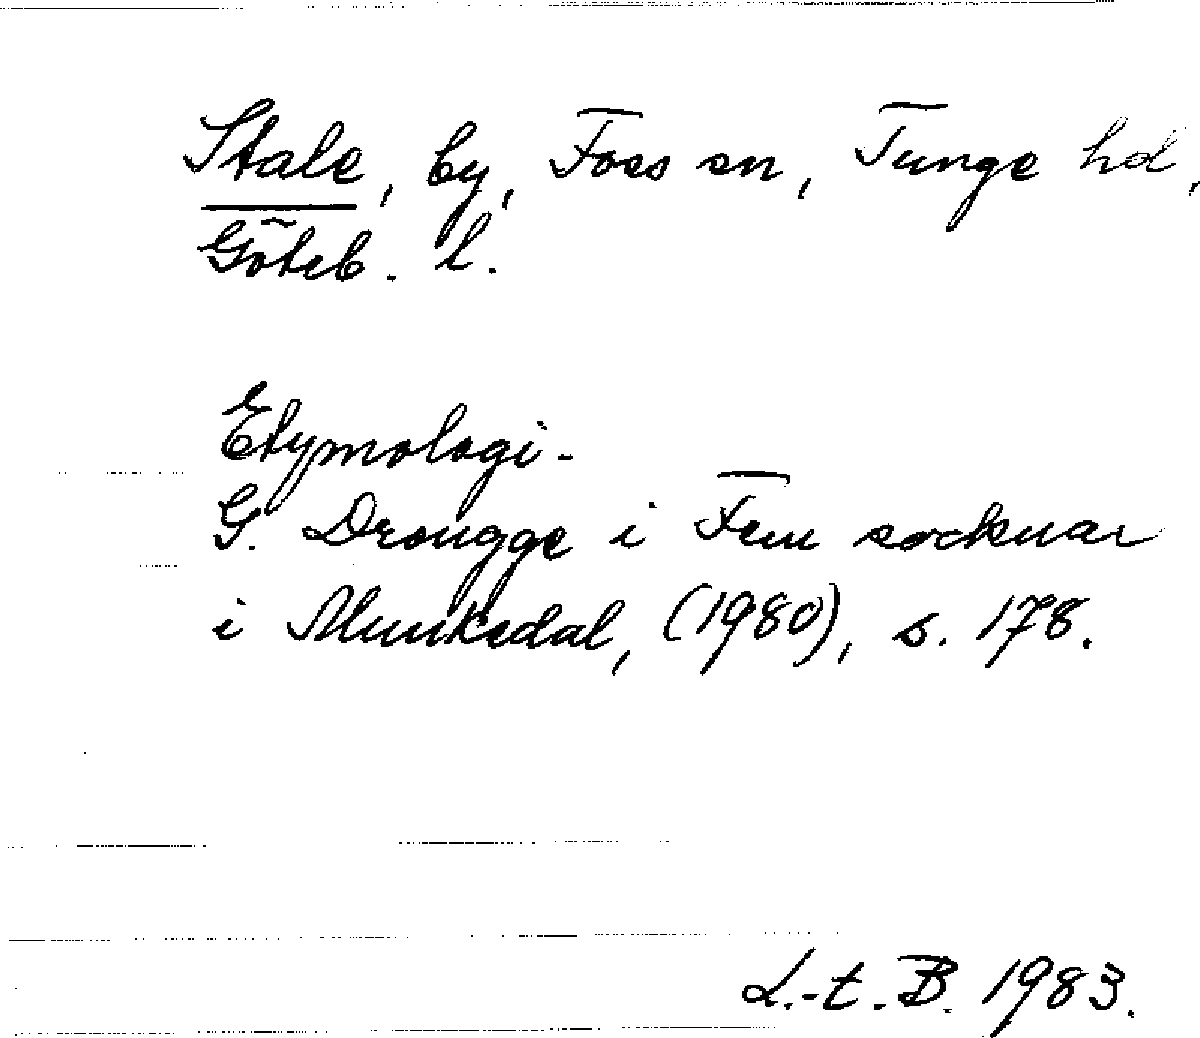 Stale, by, Foss sn, Tunge hd,
Göteb. l.
Etymologi.
G. Drougge i Fem socknar
i Munkedal, (1980), s. 178.
L.-t. B. 1983.